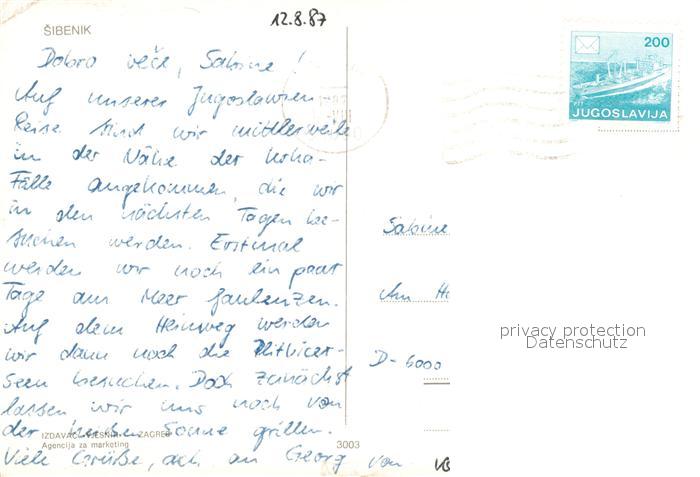 12.8.87
ŠIBENIK
200
PTT
JUGOSLAVIJA
Dobro veče, Sabine!
Auf unserer Jugoslawien
Reise sind wir mittlerweile
in der Nähe der Krka-
Fälle angekommen, die wir
in den nächsten Tagen be-
suchen werden. Erstmal
werden wir noch ein paar
Tage am Meer faulenzen.
Auf dem Heimweg werden
wir dann noch die Plitvicer-
Seen besuchen. Doch zunächst
lassen wir uns noch von
der heißen Sonne grillen.
Viele Grüße, ach an Georg
von
Sabine
Am
D-6000
privacy protection
Datenschutz
IZDAVAČ VJESNIK - ZAGREB
Agencija za marketing
3003